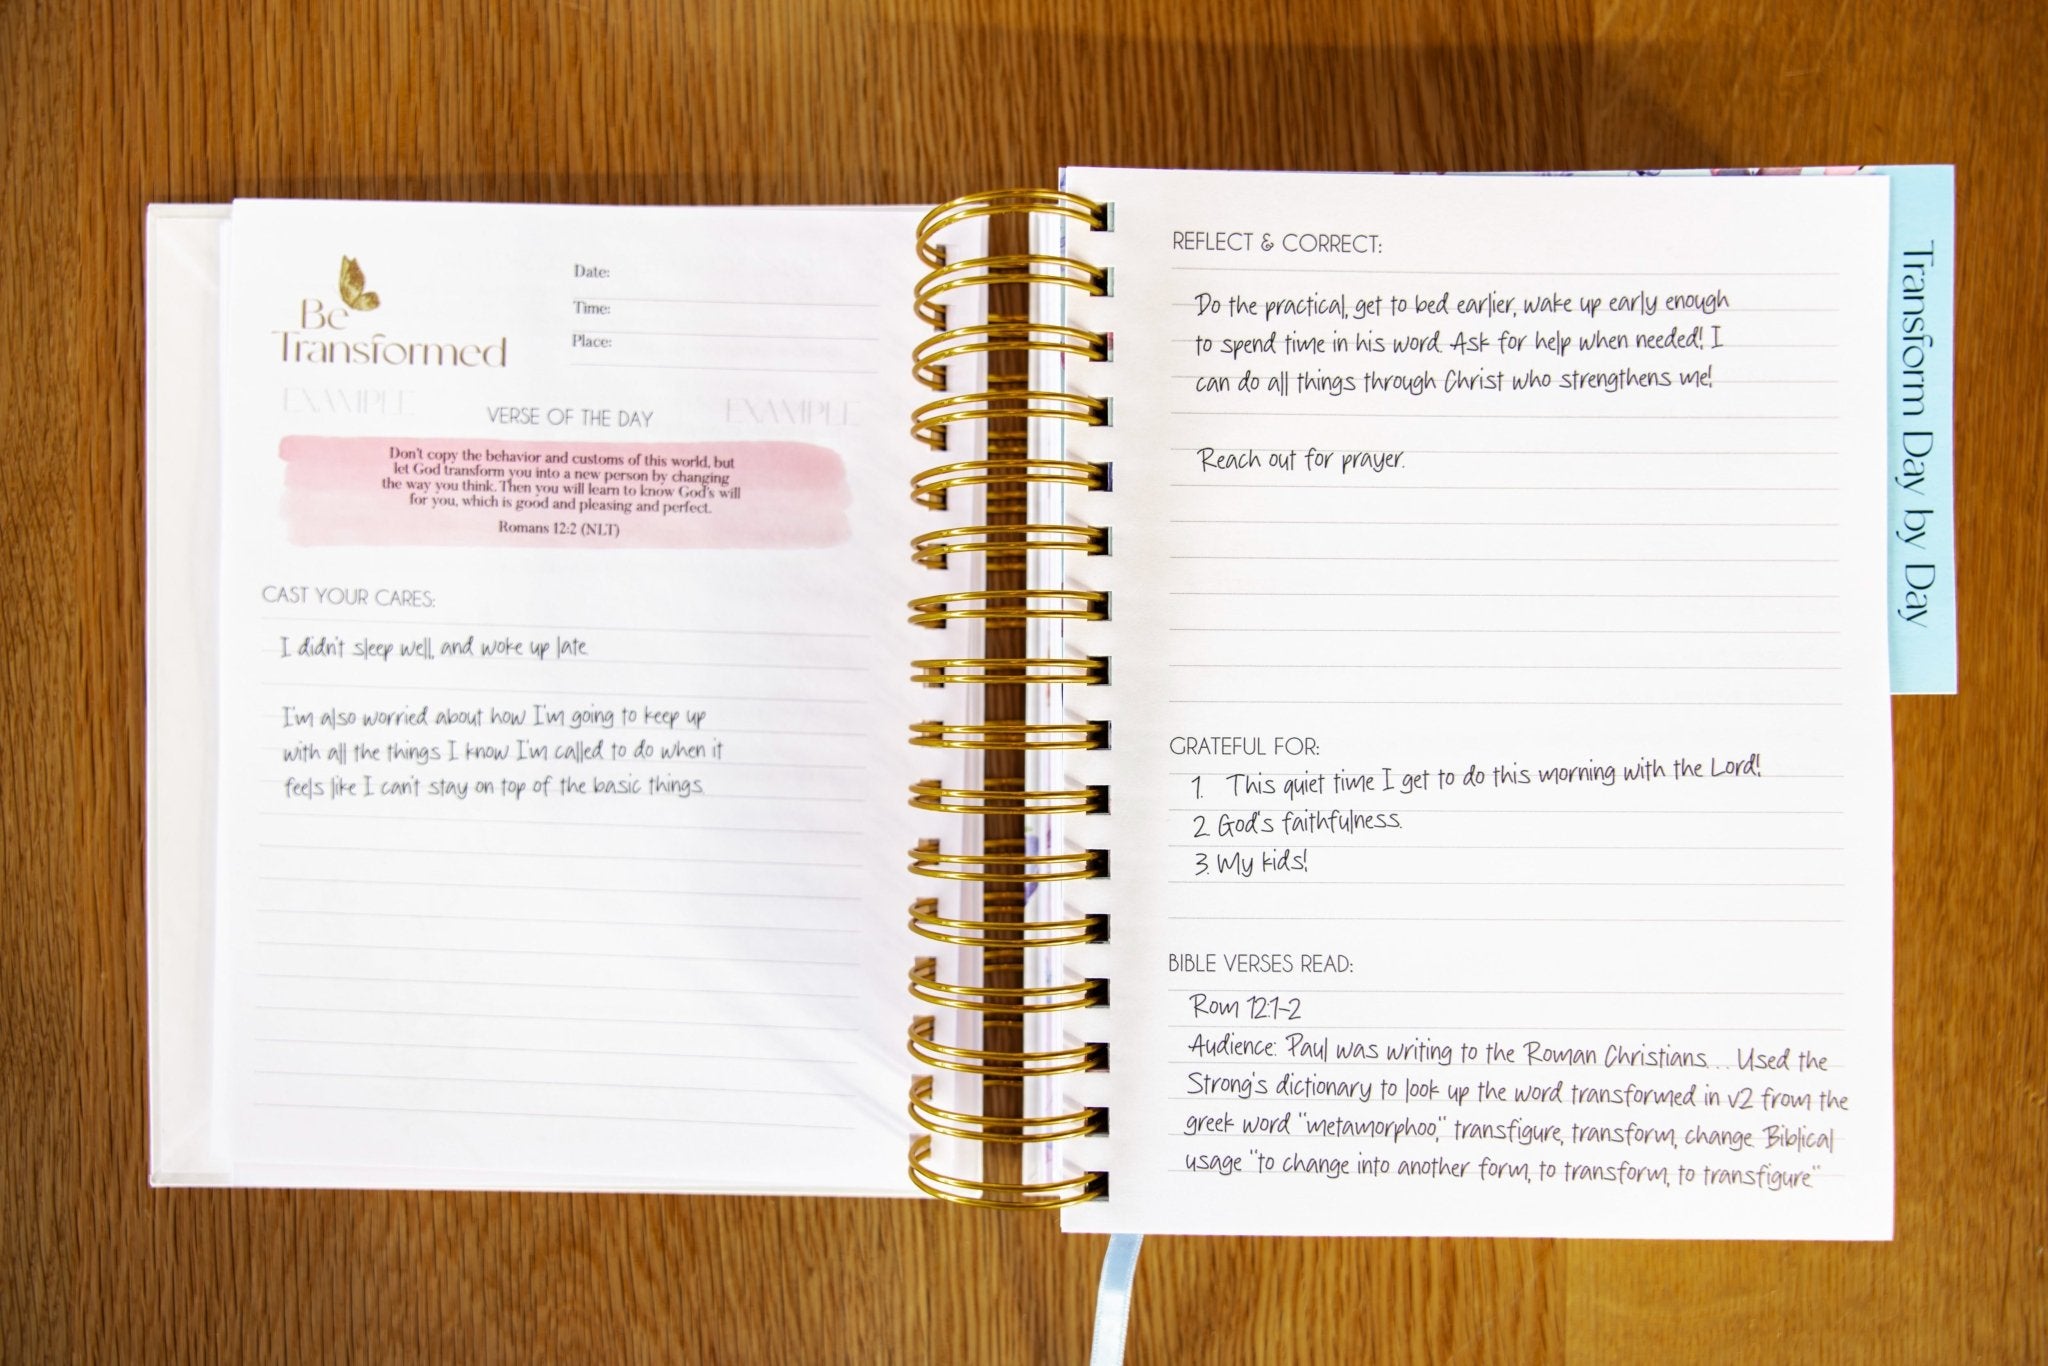 Be
Transformed
Date:
Time:
Place:
EXAMPLE
VERSE OF THE DAY
EXAMPLE
Don't copy the behavior and customs of this world, but
let God transform you into a new person by changing
the way you think. Then you will learn to know God's will
for you, which is good and pleasing and perfect.
Romans 12:2 (NLT)
CAST YOUR CARES:
I didn't sleep well, and woke up late.
I'm also worried about how I'm going to keep up
with all the things I know I'm called to do when it
feels like I can't stay on top of the basic things.
REFLECT & CORRECT:
Do the practical, get to bed earlier, wake up early enough
to spend time in his word. Ask for help when needed! I
can do all things through Christ who strengthens me!
Reach out for prayer.
GRATEFUL FOR:
1. This quiet time I get to do this morning with the Lord!
2. God's faithfulness.
3. My kids!
BIBLE VERSES READ:
Rom 12:1-2
Audience: Paul was writing to the Roman Christians... Used the
Strong's dictionary to look up the word transformed in v2 from the
greek word "metamorphoo," transfigure, transform, change. Biblical
usage "to change into another form, to transform, to transfigure"
Transform Day by Day